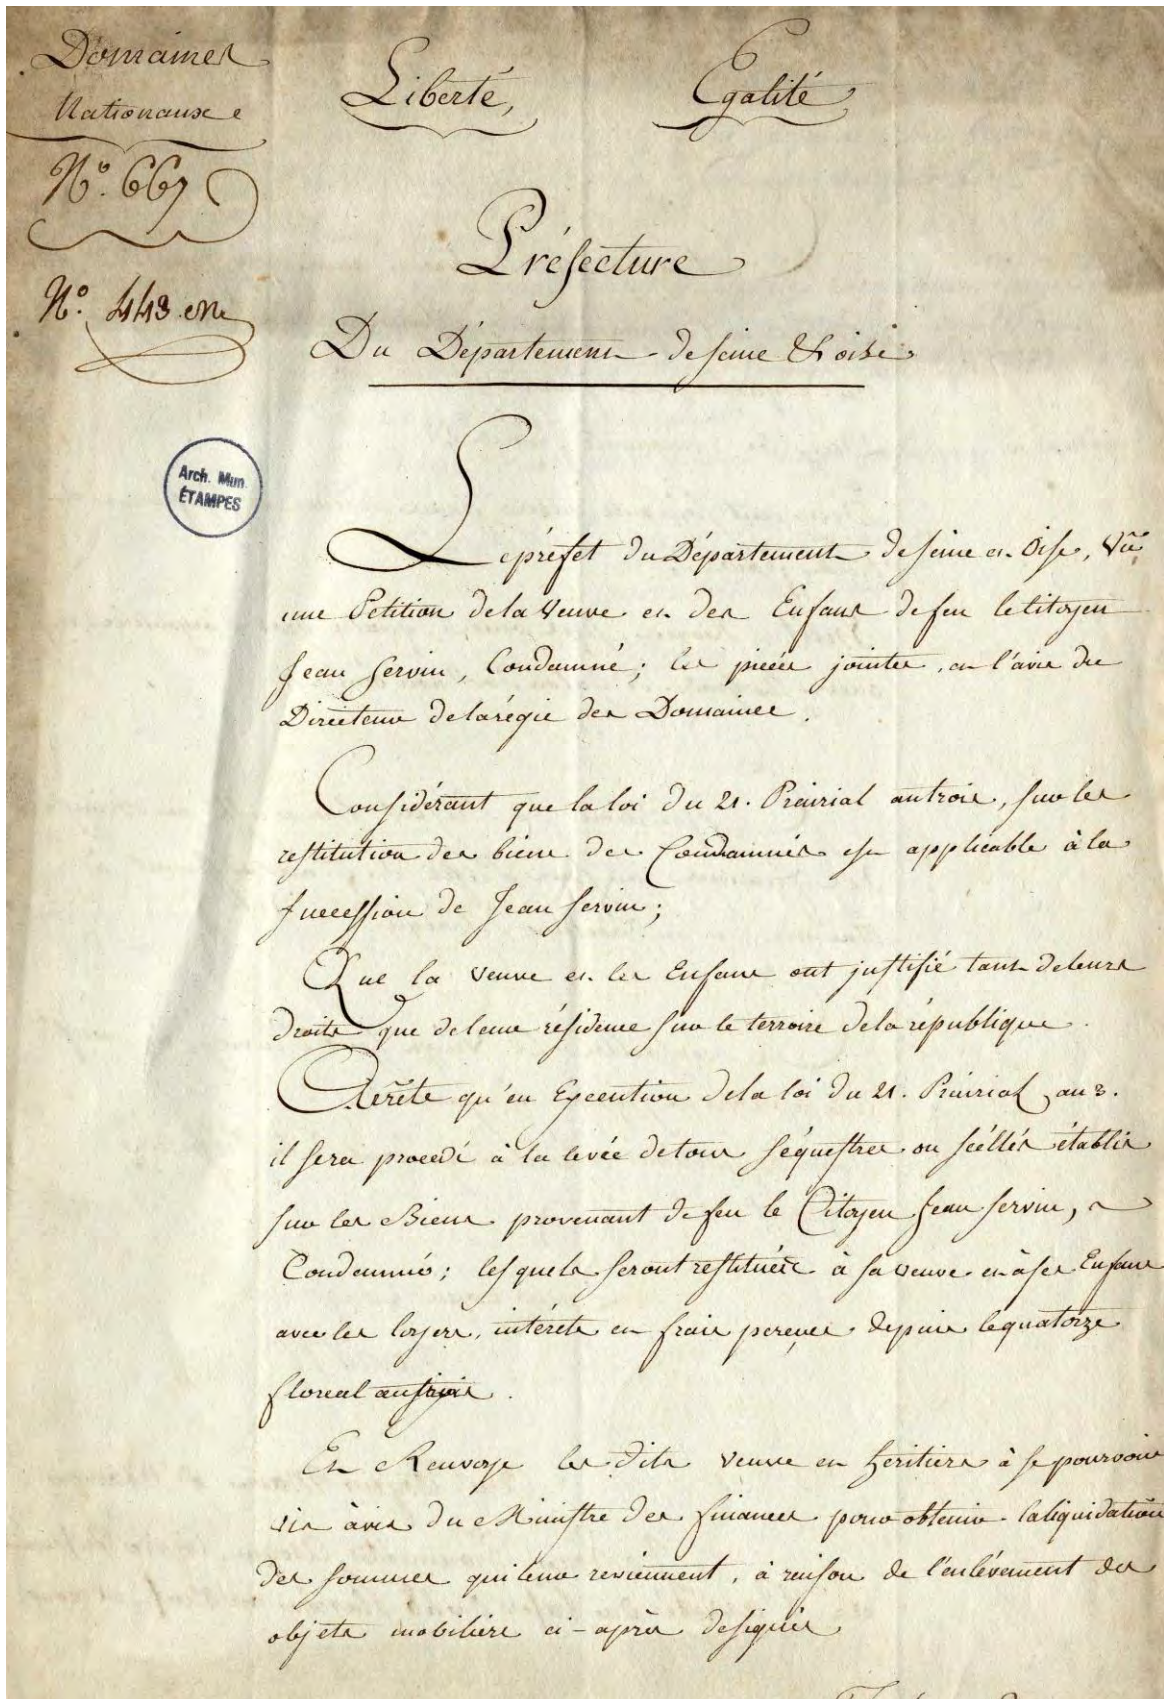 Domaines
Nationaux
N.° 667
N.° 443. en
Liberté,
Egalité
Préfecture
Du Département de seine & oise
Arch. Mun.
ÉTAMPES
Le préfet du Département de seine et Oise, Vû
une Petition de la Veuve et des Enfans de feu le Citoyen
Jean Servin, Condamné; les pieces jointes, et l'avis du
Directeur de la régie des Domaines.
Considérant que la loi du 21. Prairial an trois, sur la
restitution des biens des Condamnés est applicable à la
succession de Jean Servin;
Que la veuve et les Enfans ont justifié tant de leurs
droits que de leur résidence sur le terroire de la république.
Arrête qu'en Execution de la loi du 21. Prairial an 3.
il sera procedé à la levée de tous séquestres ou scéllés établis
sur les Biens provenant de feu le Citoyen Jean Servin,
Condamné; lesquels seront restitués à sa veuve et à ses Enfans
avec les loyers, intérets et frais perçus depuis le quatorze
floreal an trois.
Et Renvoye les dits veuve et heritiers à se pourvoir
vis à vis du Ministre des finances pour obtenir la liquidation
des sommes qui leur reviennent, à raison de l'enlévement des
objets mobiliers ci-après designés